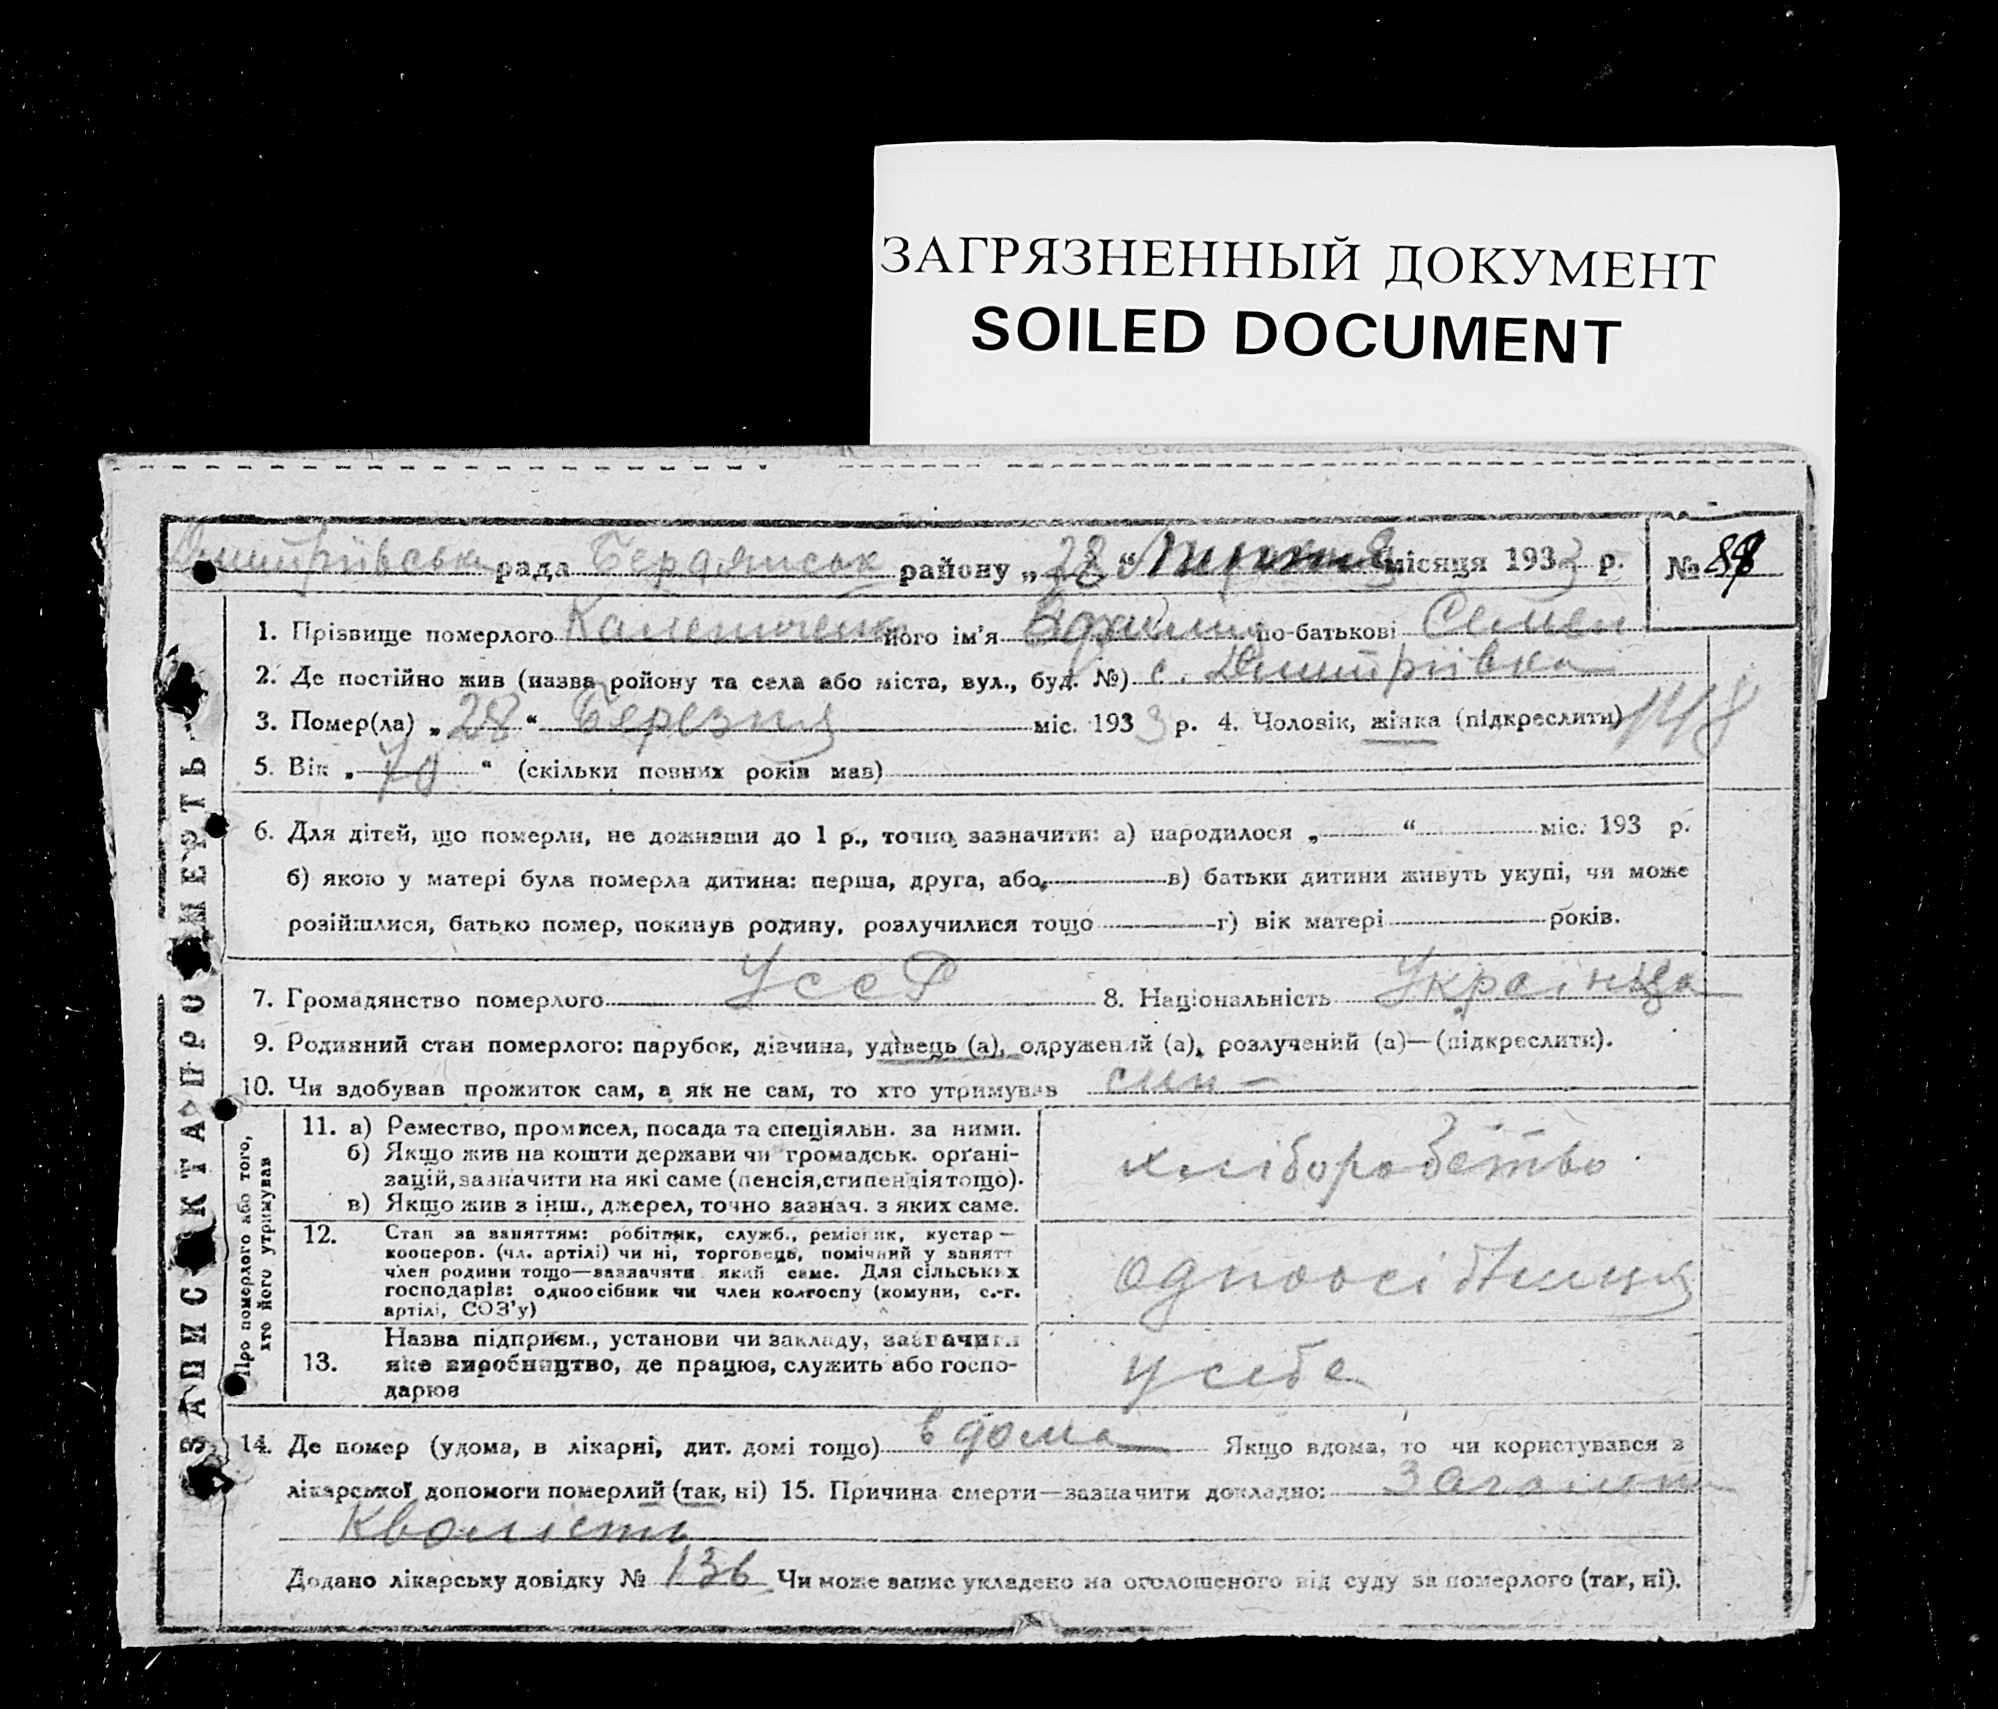 ЗАГРЯЗНЕННЫЙ ДОКУМЕНТ
SOILED DOCUMENT
Дмитрівська рада Бердянськ району „28“ місяця 1933 р. №
1. Прізвище померлого його ім'я по-батькові Семен
2. Де постійно жив (назва ройону та села або міста, вул., буд. №) с. Дмитрівка
3. Помер(ла) „28“ Березня міс. 1933 р. 4. Чоловік, жінка (підкреслити) 148
5. Вік „70“ (скільки повних років мав)
6. Для дітей, що померли, не доживши до 1 р., точно зазначити: а) народилося „ “ міс. 193 р.
б) якою у матері була померла дитина: перша, друга, або в) батьки дитини живуть укупі, чи може
розійшлися, батько помер, покинув родину, розлучилися тощо г) вік матері років.
7. Громадянство померлого УССР 8. Національність Українка
9. Родинний стан померлого: парубок, дівчина, удівець (а), одружений (а), розлучений (а)—(підкреслити).
10. Чи здобував прожиток сам, а як не сам, то хто утримував син –
11. а) Ремество, промисел, посада та спеціяльн. за ними.
б) Якщо жив на кошти держави чи громадськ. орґані-
зацій, зазначити на які саме (пенсія, стипендія тощо).
в) Якщо жив з інш., джерел, точно зазнач. з яких саме.
хліборобство
12. Стан за заняттям: робітник, служб., ремісник, кустар —
кооперов. (чл. артілі) чи ні, торговець, помічний у занятт
член родини тощо—зазначити який саме. Для сільських
господарів: одноосібник чи член колгоспу (комуни, с.-г.
артілі, СОЗ'у)
одноосібниця
13. Назва підприєм., установи чи закладу, зазначити
яке виробництво, де працює, служить або госпо-
дарює
у себе
14. Де помер (удома, в лікарні, дит. домі тощо) вдома Якщо вдома, то чи користувався з
лікарської допомоги померлий (так, ні) 15. Причина смерти—зазначити докладно:
кволість
Додано лікарську довідку № 136 Чи може запис укладено на оголошеного від суду за померлого (так, ні).
ЗАПИС АКТА ПРО СМЕРТЬ
Про померлого або того,
хто його утримував